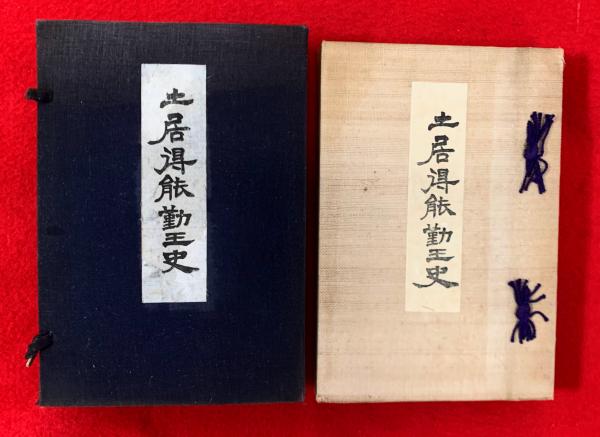 土居得能勤王史
土居得能勤王史